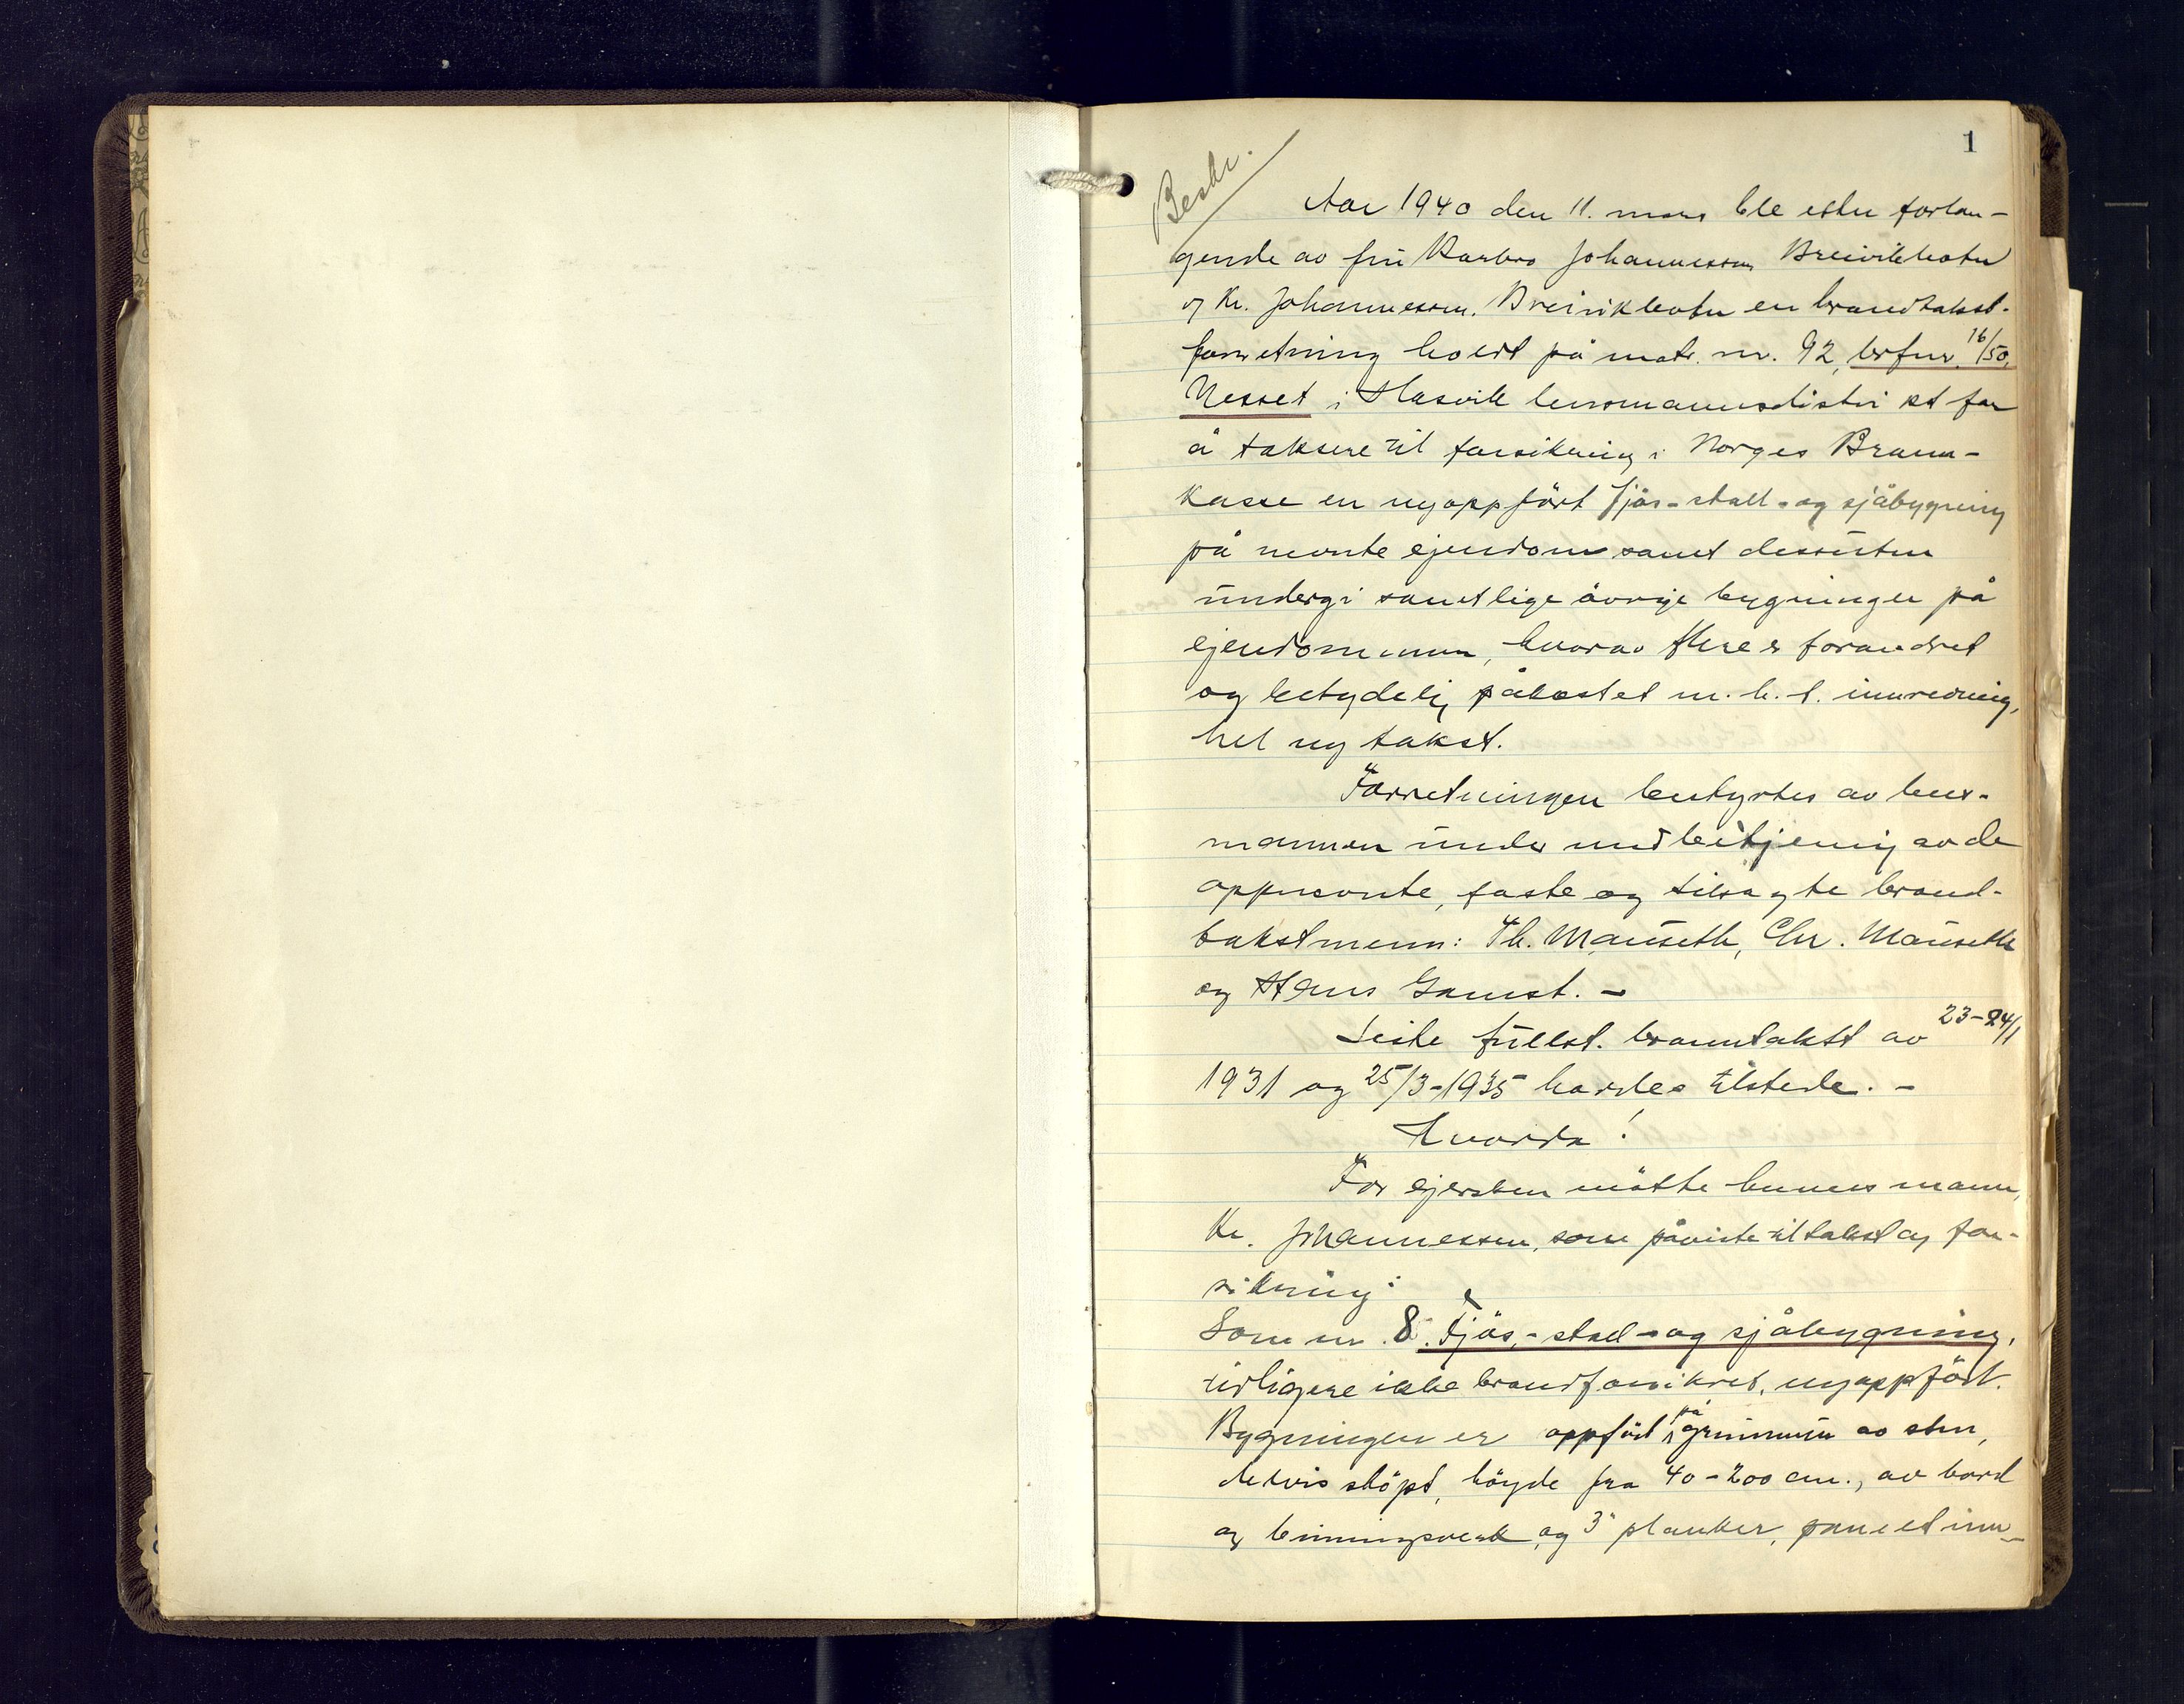 1
Beskr.
Aar 1940 den 11. mars ble etter forlan-
gende av fru Barbro Johannessen, Breivikbotn
og Kr. Johannessen, Breivikbotn en brandtakst-
forretning holdt på matr. nr. 92, brfnr. 16/50,
Nesset i Hasvik lensmannsdistrikt for
å taksere til forsikring i Norges Brann-
kasse en nyoppført fjøs- stall- og sjåbygning
på nevnte ejendom samt dessuten
undergi samtlige øvrige bygninger på
ejendommen, hvorav flere er forandret
og betydelig påkostet m.h.t. innredning,
hel ny takst.
Forretningen bestyrtes av lens-
mannen under medbetjening av de
oppnevnte, faste og tilsagte brand-
takstmenn: Th. Mauseth, Chr. Mauseth
og Hans Gamst. -
Siste fullst. branntakst av 23-24/1
1931 og 25/3-1935 hardes tilstede. -
Hvorda!
For ejersken møtte hennes mann,
Kr. Johannessen, som påviste til takst og for-
sikring:
Som nr. 8. Fjøs,- stal- og sjåbygning,
tidligere ikke brandforsikret, nyoppført.
Bygningen er oppført på grunnmur av sten,
delvis støpt, høyde fra 40-200 cm., av bord
og binningsverk, og 3" planker, panelt inn-